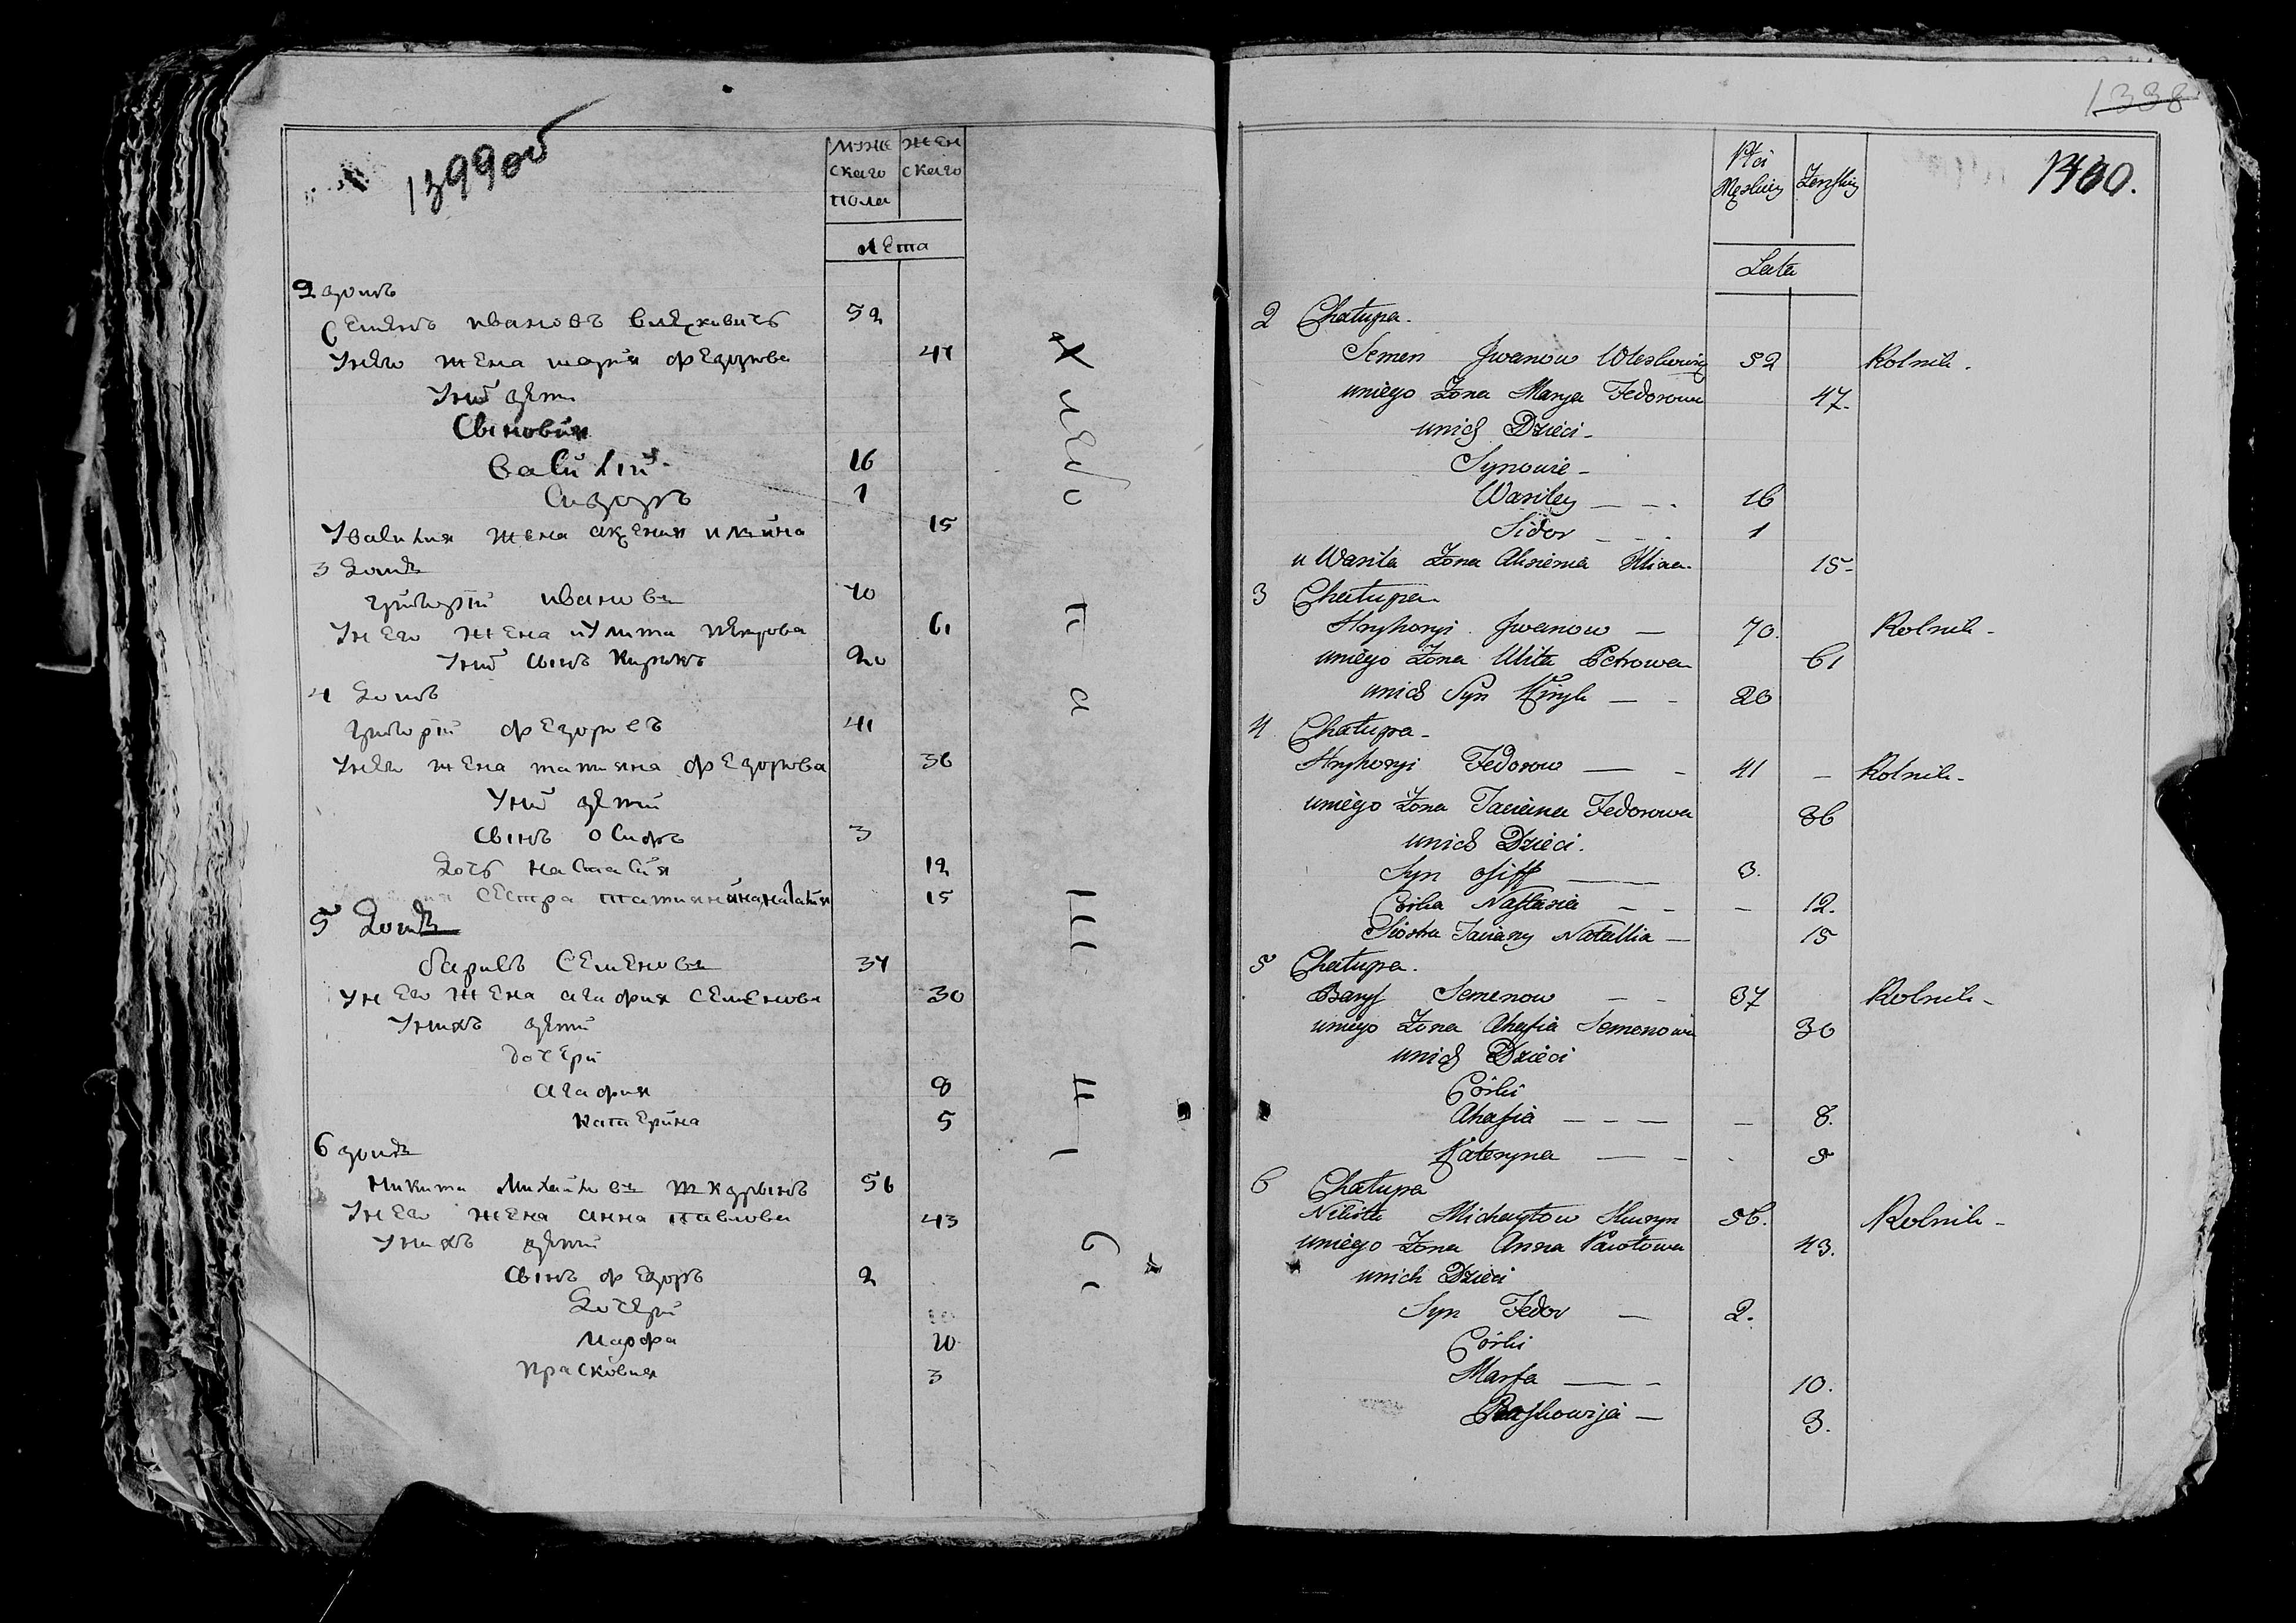 1399об
муже
скаго
пола
жен
скаго
лета
2 домъ
Семенъ ивановъ 52
Унего жена мария федорова 47
Уних дети
Сыновия
Василий 16
Сидоръ 1
Увасилия жена аксения илина 15
3 Домъ
григорий ивановъ 70
Унего жена улита петрова 61
Уних сынъ кирикъ 20
4 Домъ
григорий федоровъ 41
Унего жена татияна федорова 36
Уних дети
сынъ осифъ 3
дочь настасия 12
сестра татиянина наталия 15
5 Домъ
барисъ семеновъ 37
унего жена агафия семенова 30
Унихъ дети
дочери
агафия 8
катерина 5
6 домъ
никита михайловъ 56
Унего жена анна павлова 43
Унихъ дети
сынъ федоръ 2
дочери
марфа 10
прасковия 3
хлебопашец
1338
1400.
Płci
Męskiey
Żenskiey
Lata
2 Chałupa.
Semen Jwanow 52 Rolnik.
uniego Żona Marya Fedorowa 47.
unich Dzieci-
Synowie-
Wasiley 16
Sidor 1
u Wasila Żona Aksienia Ilina 15-
3 Chałupa
Hryhoryi Jwanow 70. Rolnik-
uniego Żona Ulita Petrowa 61
unich Syn Kiryk 20
4 Chałupa-
Hryhoryi Fedorow 41 Rolnik-
uniego Żona Taciana Fedorowa 36
unich Dzieci.
Syn Osiff 3.
Córka Nastasia 12.
Siostra Taciany Natallia 15
5 Chałupa.
Barys Semenow 37 Rolnik-
uniego Żona Ahafia Semenowa 30
unich Dzieci
Córki
Ahafia 8.
Kateryna 5
6 Chałupa
Nikita Michayłow 56. Rolnik-
uniego Żona Anna Pawłowa 43.
unich Dzieci
Syn Fedor 2.
Córki
Marfa 10.
Praskowija 3.